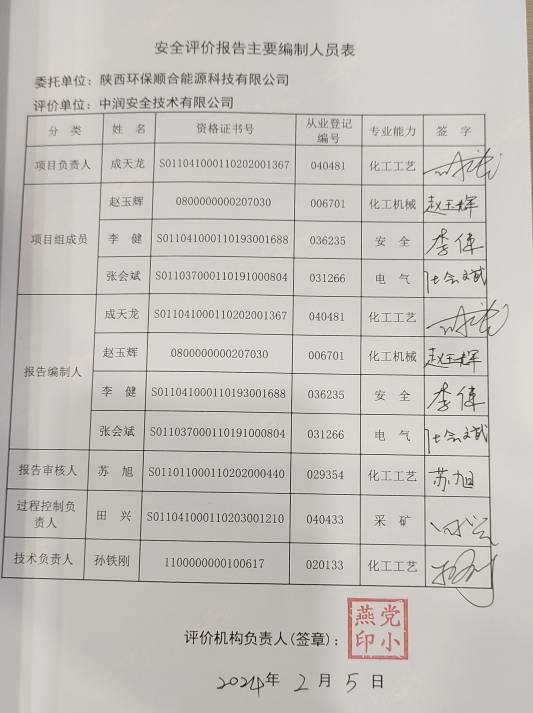 安全评价报告主要编制人员表
委托单位：陕西环保顺合能源科技有限公司
评价单位：中润安全技术有限公司
分 类 姓 名 资格证书号 从业登记编号 专业能力 签 字
项目负责人 成天龙 S011041000110202001367 040481 化工工艺
项目组成员 赵玉辉 0800000000207030 006701 化工机械 赵玉辉
李 健 S011041000110193001688 036235 安 全 李健
张会斌 S011037000110191000804 031266 电 气 张会斌
报告编制人 成天龙 S011041000110202001367 040481 化工工艺
赵玉辉 0800000000207030 006701 化工机械 赵玉辉
李 健 S011041000110193001688 036235 安 全 李健
张会斌 S011037000110191000804 031266 电 气 张会斌
报告审核人 苏 旭 S011011000110202000440 029354 化工工艺 苏旭
过程控制负责人 田 兴 S011041000110203001210 040433 采 矿
技术负责人 孙铁刚 1100000000100617 020133 化工工艺
评价机构负责人(签章)：
党小燕印
2024年 2 月 5 日